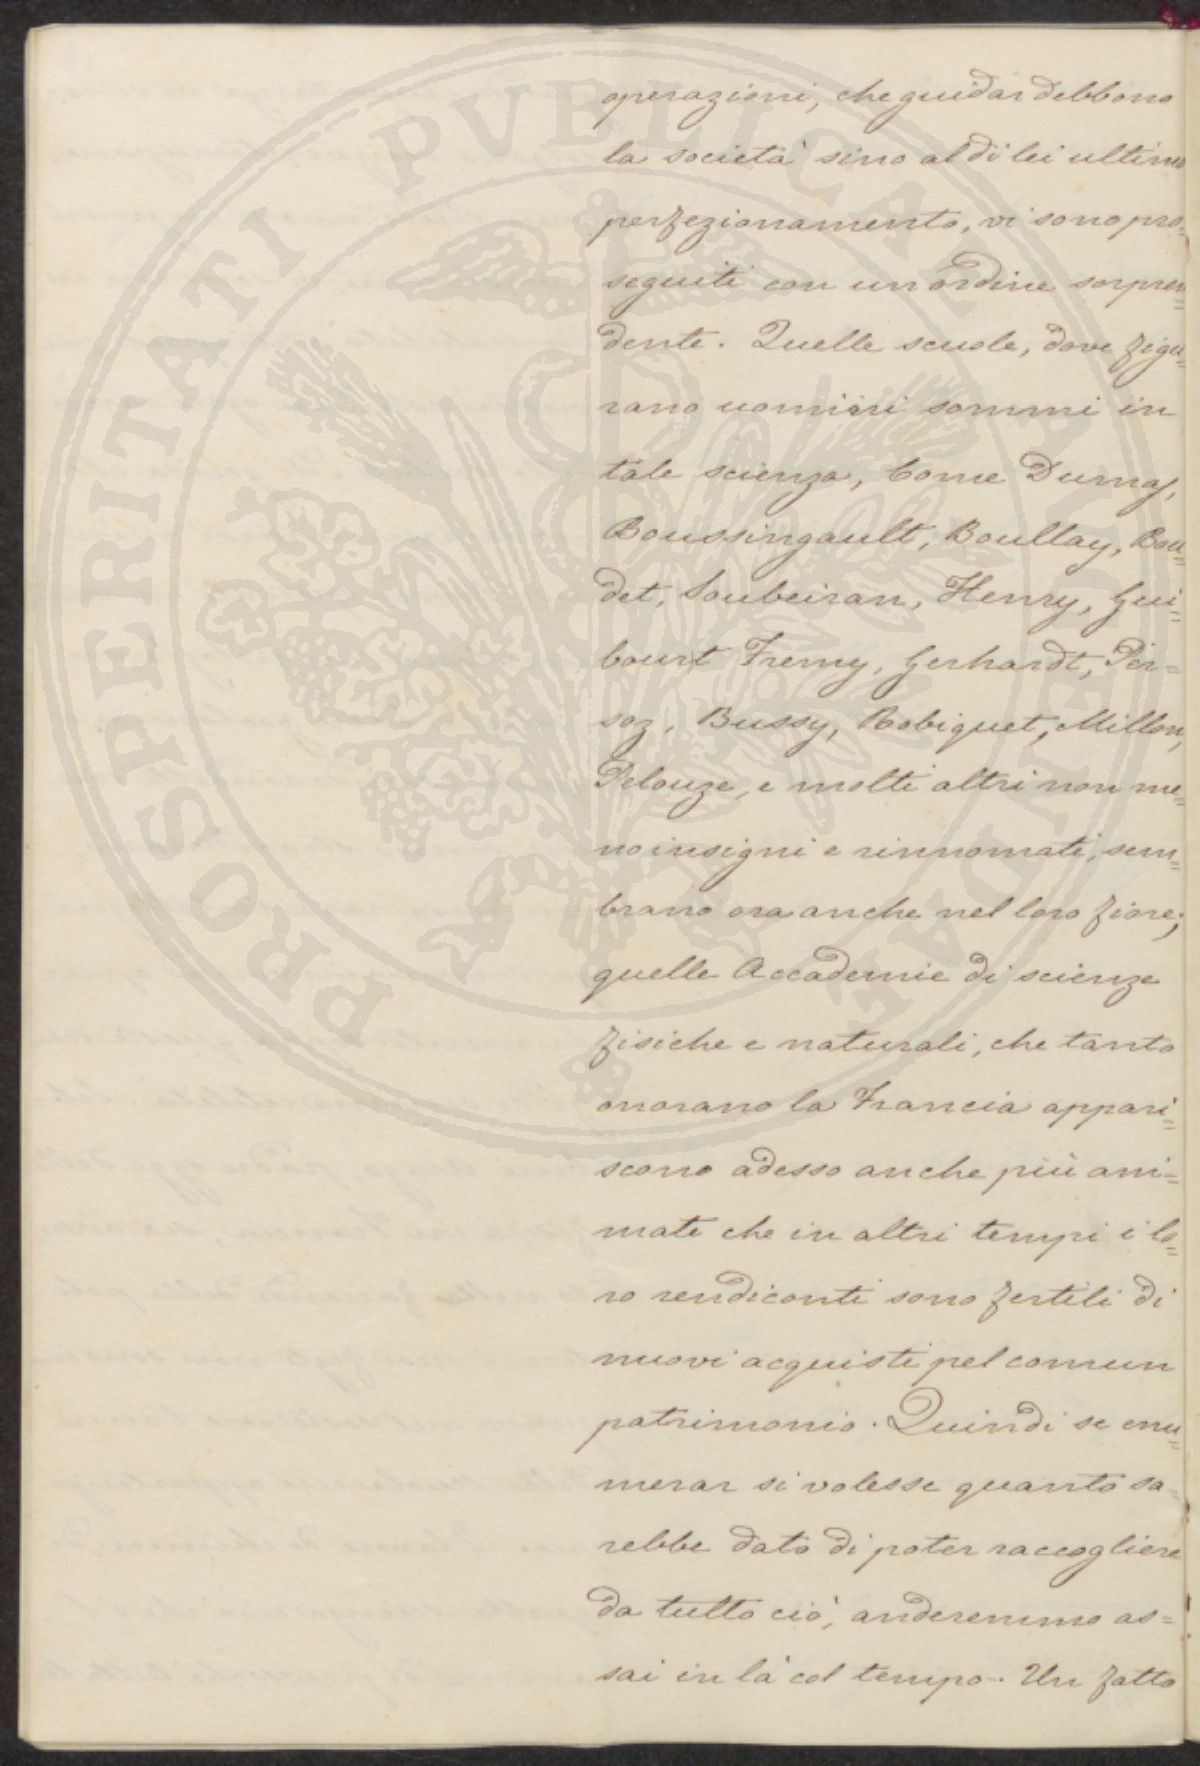 operazioni, che guidar debbono
la società sino al di lei ultimo
perfezionamento, vi sono pro=
seguiti con un ordine sorpren=
dente. Quelle scuole, dove figu=
rano uomini sommi in
tale scienza, Come Dumas,
Boussingault, Boullay, Bou=
det, Soubeiran, Henry, Gui=
bourt Fremy, Gerhardt, Per=
soz, Bussy, Robiquet, Millon,
Pelouze, e molti altri non me=
no insigni e rinnomati, sem=
brano ora anche nel loro fiore;
quelle Accademie di scienze
fisiche e naturali, che tanto
onorano la Francia appari=
scono adesso anche più ani=
mate che in altri tempi i lo=
ro rendiconti sono fertili di
nuovi acquisti pel comun
patrimonio. Quindi se enu=
merar si volesse quanto sa=
rebbe dato di poter raccogliere
da tutto ciò, anderemmo as=
sai in là col tempo. Un fatto
PROSPERITATI PVBLICAE AVGENDAE